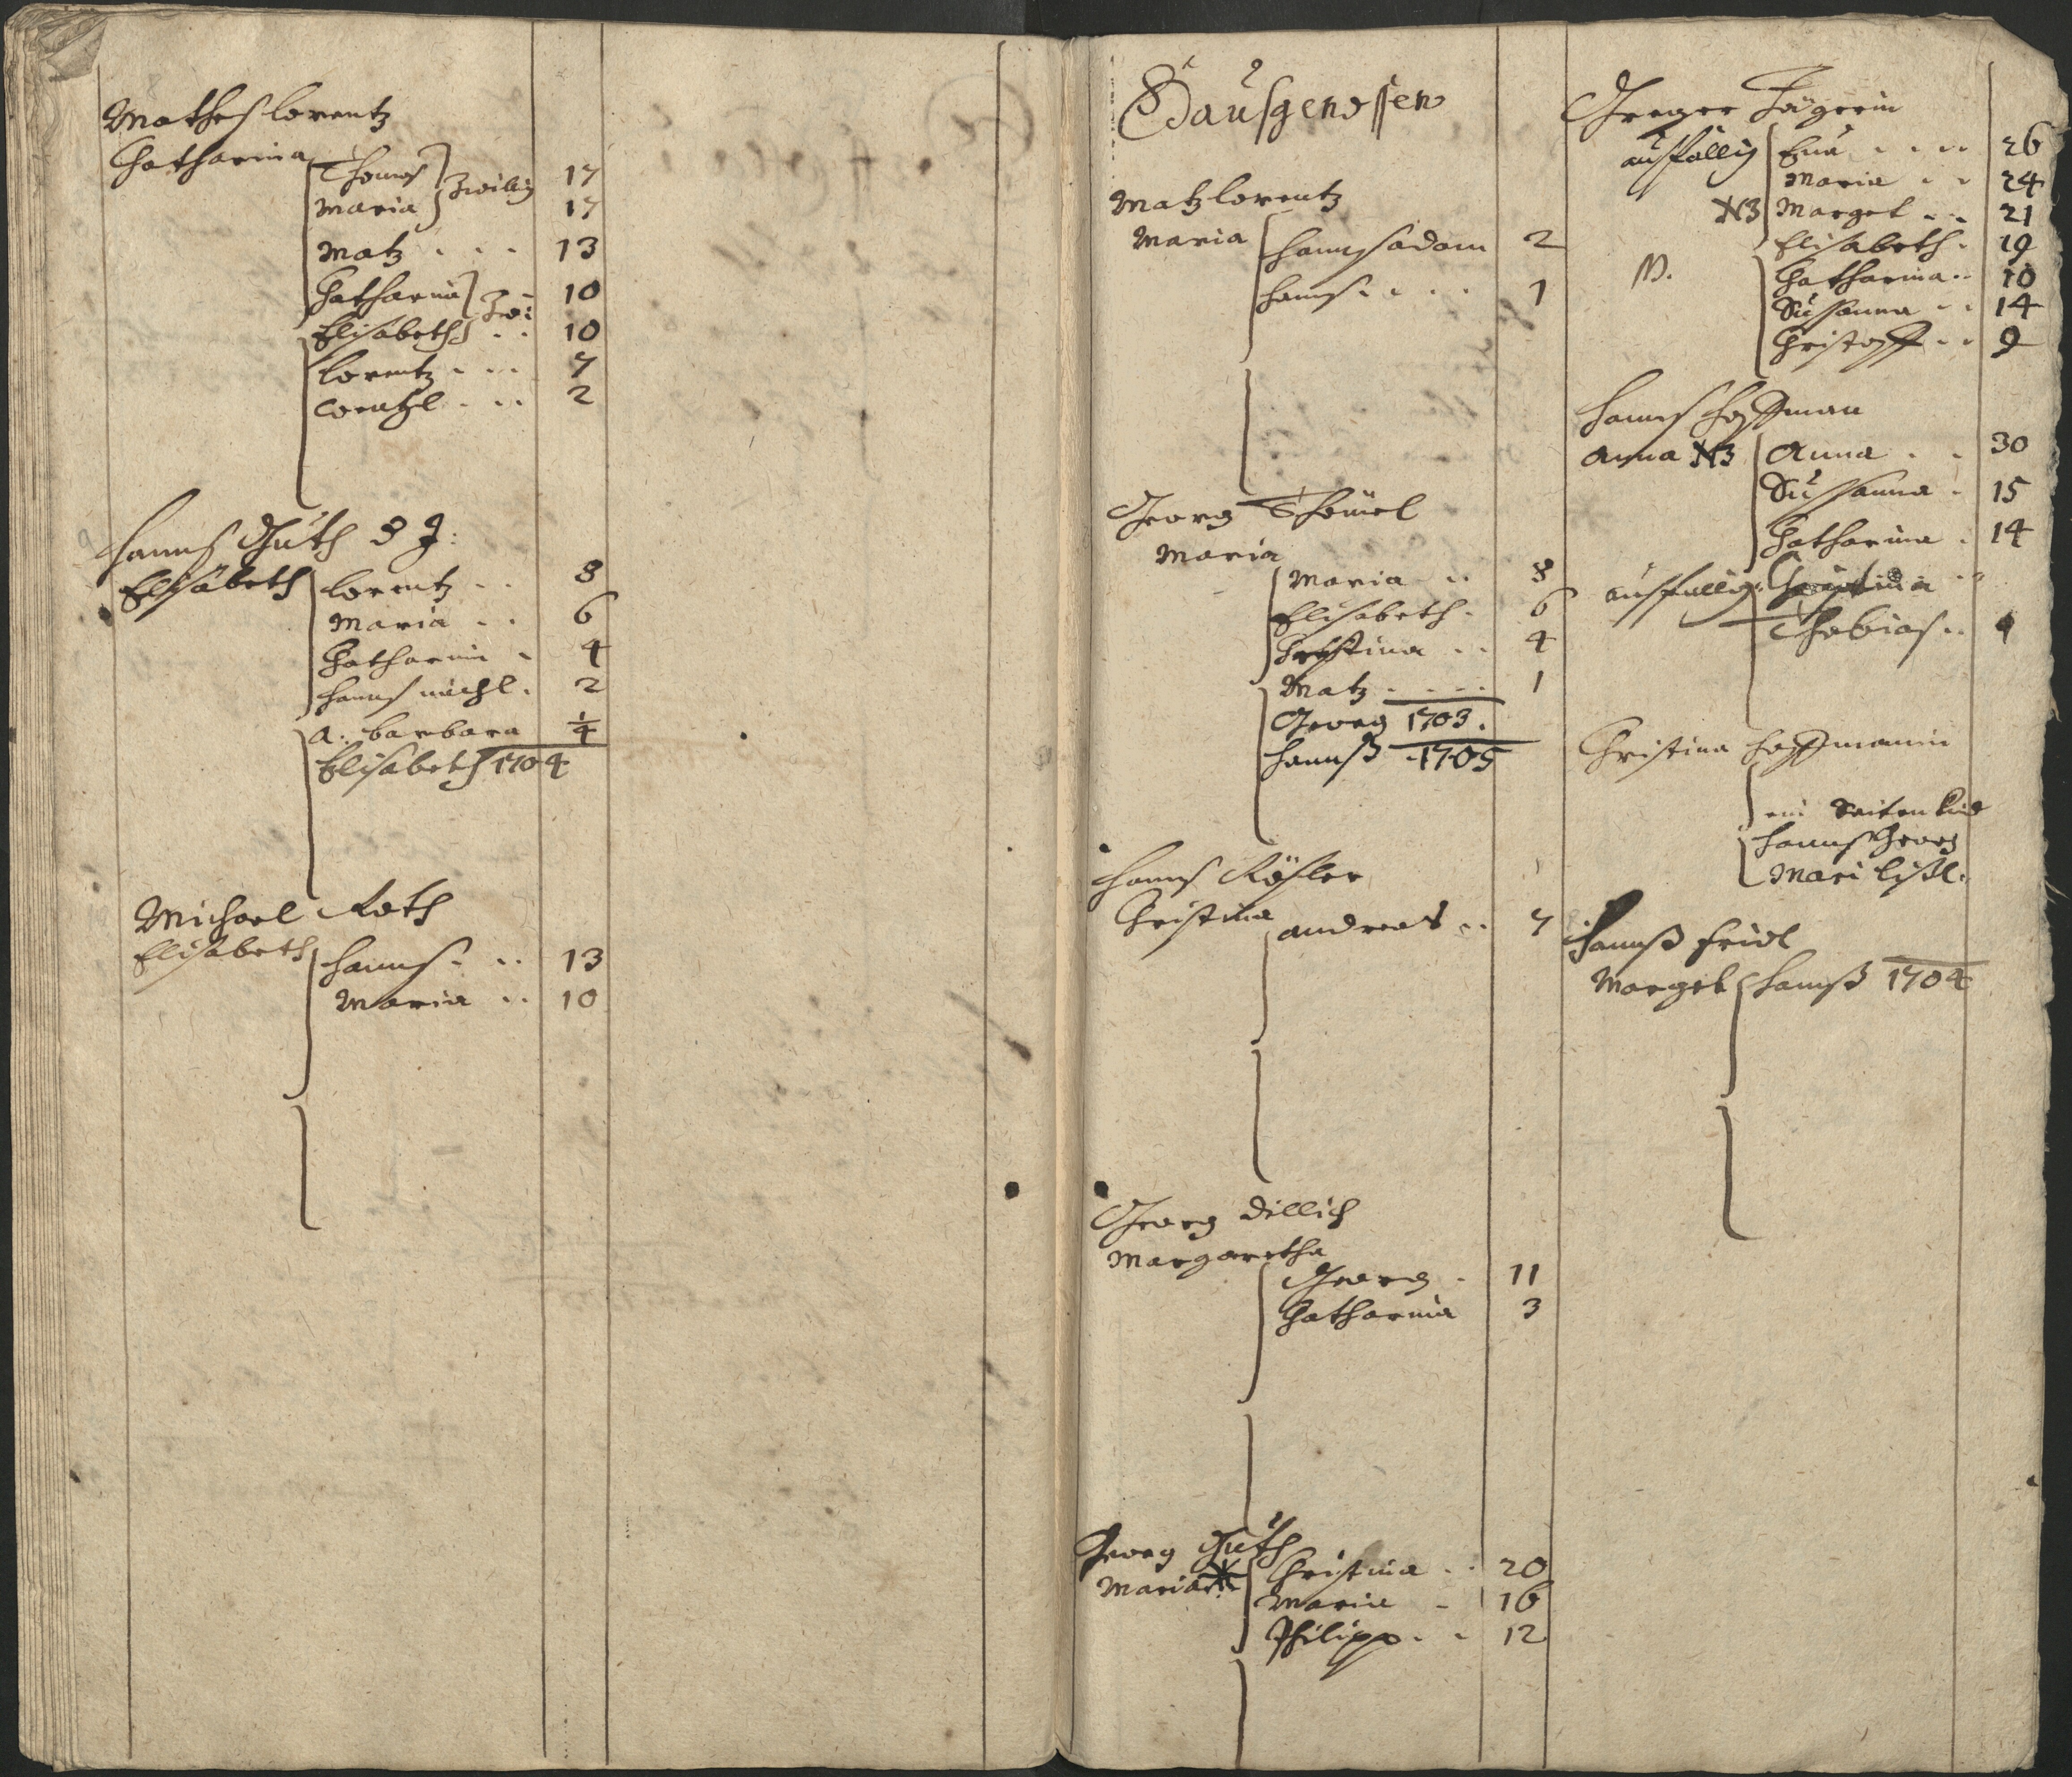 Mathes lorentz
Catharina
Thomas 17
Maria } Zwilig 17
Matz . . . 13
Catharina 10
Elisabeth } Zwi: . . 10
lorentz . . . 7
wentzl . . . 2
Hanns Guth d J:
Elisabeth
lorentz . . 8
Maria . . 6
Catharina . 4
Hanns michl . 2
A: barbara 1/4
Elisabeth 1704
Michael Roth
Elisabeth
Hanns . . . 13
Maria . . 10
Haußgenossen
Matz lorentz
Maria
Hannß adam 2
Hanns . . . . 1
Georg Thömel
Maria
Maria . . 8
Elisabeth . 6
Christina . . 4
Matz . . . . 1
Georg 1703 .
Hannß . 1705
Hanns Rößler
Christina
andreas . . 7
Georg Dillich
Margaretha
Georg . 11
Catharina 3
Georg Guth
Maria
Christina . . 20
Maria . 16
Philipp . . 12
Jägerin
außfällig
Eua . . . . 26
Maria . . 24
N3 Marget . . 21
Elisabeth . 19
Catharina . . 10
Sussanna . . 14
Christoff . . 9
Hanns Hoffman
Anna N3
Anna . . 30
Sussanna . 15
Catharina . 14
außfällig Christina . .
Thobias . .
Christina Hoffmanin
ein Seiten Kind
Hanns Georg
Mari lissl .
Hannß fridl
Marget
Hannß 1704